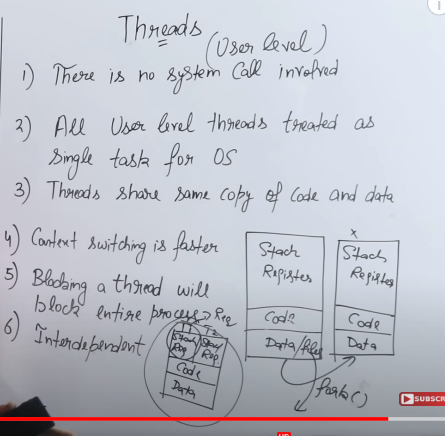 Threads
(User level)
1) There is no system call involved
2) All User level threads treated as
single task for OS
3) Threads share same copy of code and data
4) Context switching is faster
5) Blocking a thread will
block entire process → Req
6) Interdependent
T1 T2
Stack Reg
Stack Reg
Code
Data
Stack
Register
Code
Data/files
x
Stack
Register
Code
Data
fork()
SUBSC
HD